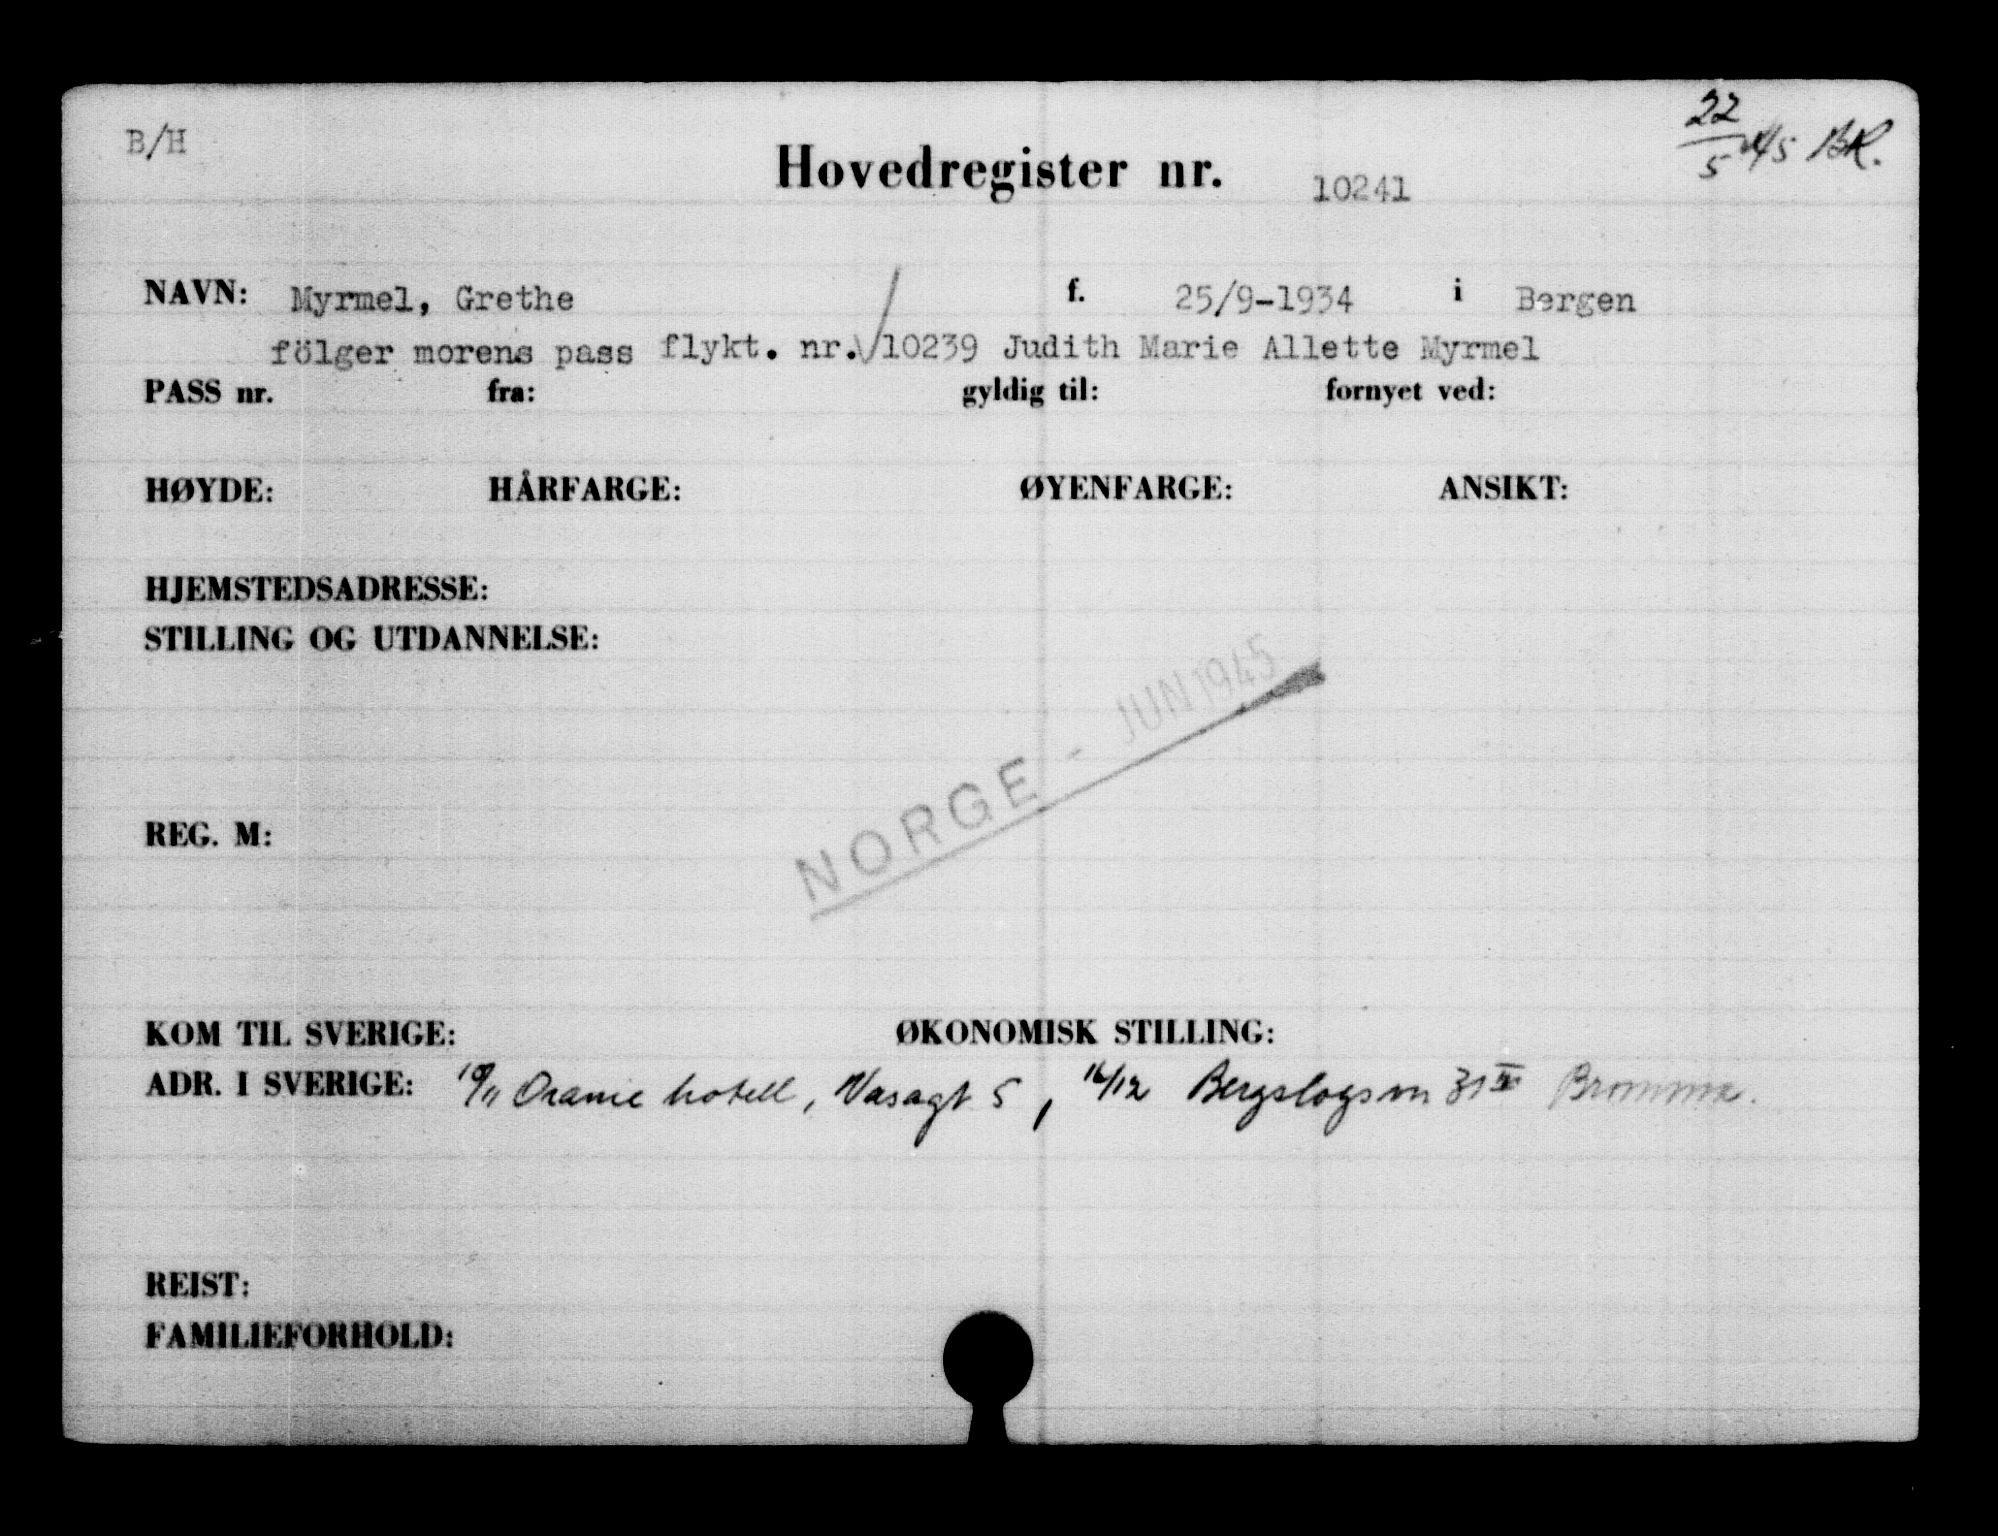 B/H
22/5 45 BR.
Hovedregister nr. 10241
NAVN: Myrmel, Grethe f. 25/9-1934 i Bergen
fölger morens pass flykt. nr. 10239 Judith Marie Allette Myrmel
PASS nr. fra: gyldig til: fornyet ved:
HØYDE: HÅRFARGE: ØYENFARGE: ANSIKT:
HJEMSTEDSADRESSE:
STILLING OG UTDANNELSE:
NORGE - JUN 1945
REG. M:
KOM TIL SVERIGE: ØKONOMISK STILLING:
ADR. I SVERIGE: 10/11 Oranie hotell, Vasagt 5, 16/12 Bergslagsvn 31 Bromma.
REIST:
FAMILIEFORHOLD: